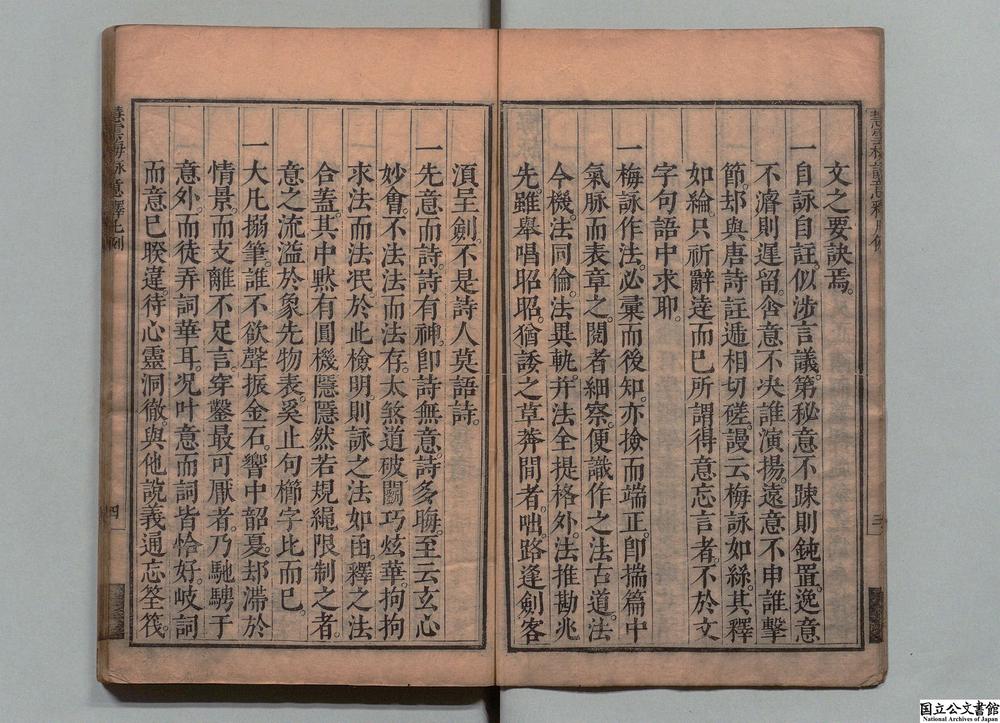 文之要訣焉。
一自詠自註。似涉言議。第秘意不踈則鈍置。逸意
不濬則遲留。含意不央誰演揚。遠意不申誰擊
節。却與唐詩註遞相切磋。謾云梅詠如絲。其釋
如綸。只祈辭達而已。所謂得意忘言者。不於文
字句語中求耶。
一梅詠作法。必彙而後知。亦撿而端正。卽揣篇中
氣脉而表章之。閱者細察。便識作之法古道。法
今機。法同倫。法異軌。幷法全提格外。法推勘兆
先。雖舉唱昭昭。猶諉之草莽間者。咄。路逢劍客
須呈劍。不是詩人莫語詩。
一先意而詩。詩有神。卽詩無意。詩多晦。至云玄心
妙會。不法法而法存。太煞道破關。巧炫華。拘拘
求法而法泯。於此檢明。則詠之法如函。釋之法
合蓋。其中默有圓機隱隱然若規繩限制之者。
意之流溢於象先物表。奚止句櫛字比而已。
一大凡搦筆。誰不欲聲振金石。響中韶戛。却滯於
情景。而支離不足言。穿鑿最可厭者。乃馳騁于
意外。而徒弄詞華耳。况叶意而詞皆恰好。岐詞
而意已睽違。待心靈洞徹。與他說義通忘筌筏。
三
四
国立公文書館
National Archives of Japan